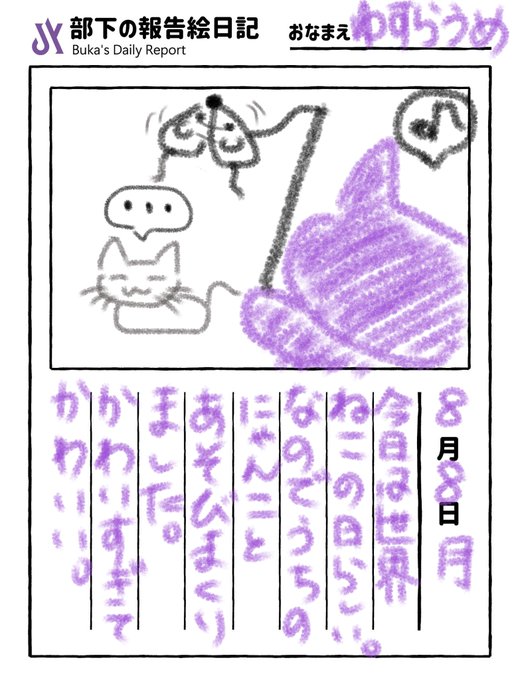 部下の報告絵日記
Buka's Daily Report
おなまえ わすらうめ
...
8月8日 月
今日は世界
ねこの日らしい。
なのでうちの
にゃんこと
あそびまくり
ました。
かわいすぎて
かわいい。